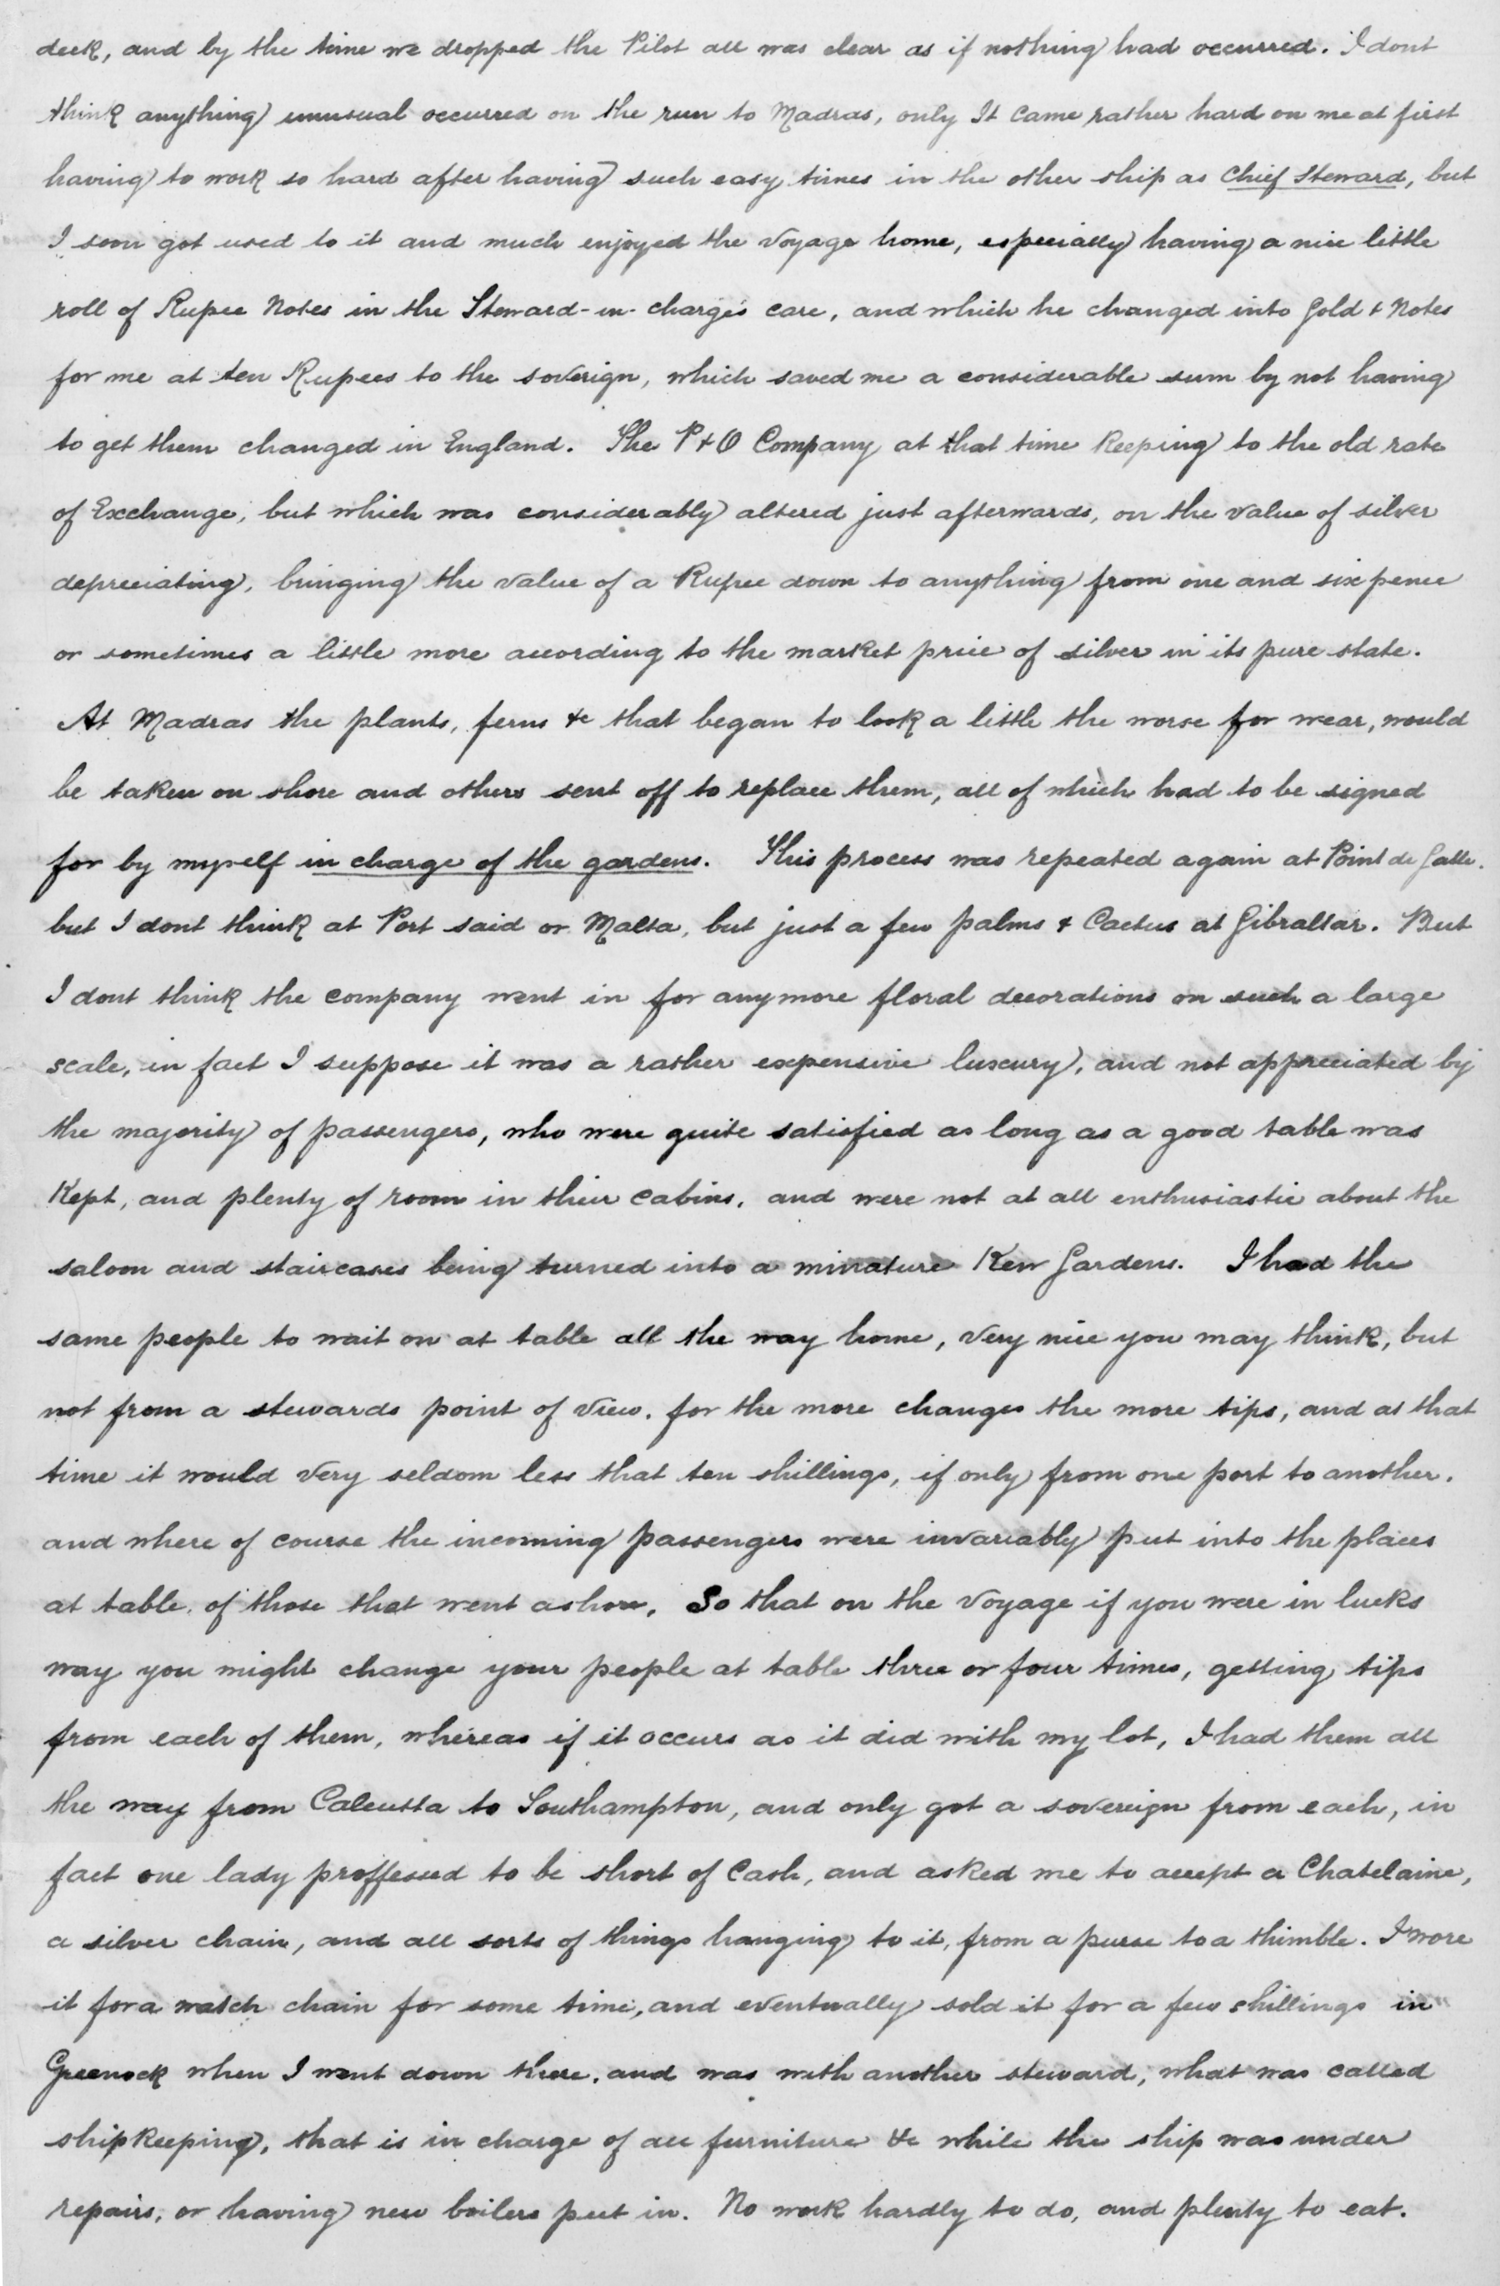 deck, and by the time we dropped the Pilot all was clear as if nothing had occurred. I dont
think anything unusual occurred on the run to Madras, only It came rather hard on me at first
having to work so hard after having such easy times in the other ship as Chief Steward, but
I soon got used to it and much enjoyed the voyage home, especially having a nice little
roll of Rupee Notes in the Steward-in-charge's care, and which he changed into Gold & Notes
for me at ten Rupees to the soverign, which saved me a considerable sum by not having
to get them changed in England. The P & O Company at that time keeping to the old rate
of Exchange, but which was considerably altered just afterwards, on the value of silver
depreciating, bringing the value of a Rupee down to anything from one and sixpence
or sometimes a little more according to the market price of silver in its pure state.
At Madras the plants, ferns &c that began to look a little the worse for wear, would
be taken on shore and others sent off to replace them, all of which had to be signed
for by myself in charge of the gardens. This process was repeated again at Point de Galle.
but I dont think at Port said or Malta, but just a few palms & Cactus at Gibraltar. But
I dont think the company went in for anymore floral decorations on such a large
scale, in fact I suppose it was a rather expensive luxury, and not appreciated by
the majority of passengers, who were quite satisfied as long as a good table was
Kept, and plenty of room in their cabins, and were not at all enthusiastic about the
saloon and staircases being turned into a minature Kew Gardens. I had the
same people to wait on at table all the way home, very nice you may think, but
not from a stewards point of view. for the more changes the more tips, and at that
time it would very seldom less that ten shillings, if only from one port to another.
and where of course the incoming passengers were invariably put into the places
at table of those that went ashore. So that on the voyage if you were in lucks
way you might change your people at table three or four times, getting tips
from each of them, whereas if it occurs as it did with my lot, I had them all
the way from Calcutta to Southampton, and only got a sovereign from each, in
fact one lady proffessed to be short of Cash, and asked me to accept a Chatelaine,
a silver chain, and all sorts of things hanging to it, from a purse to a thimble. I wore
it for a watch chain for some time, and eventually sold it for a few shillings in
Greenock when I went down there, and was with another steward, what was called
shipkeeping, that is in charge of all furniture &c while the ship was under
repairs, or having new boilers put in. No work hardly to do, and plenty to eat.